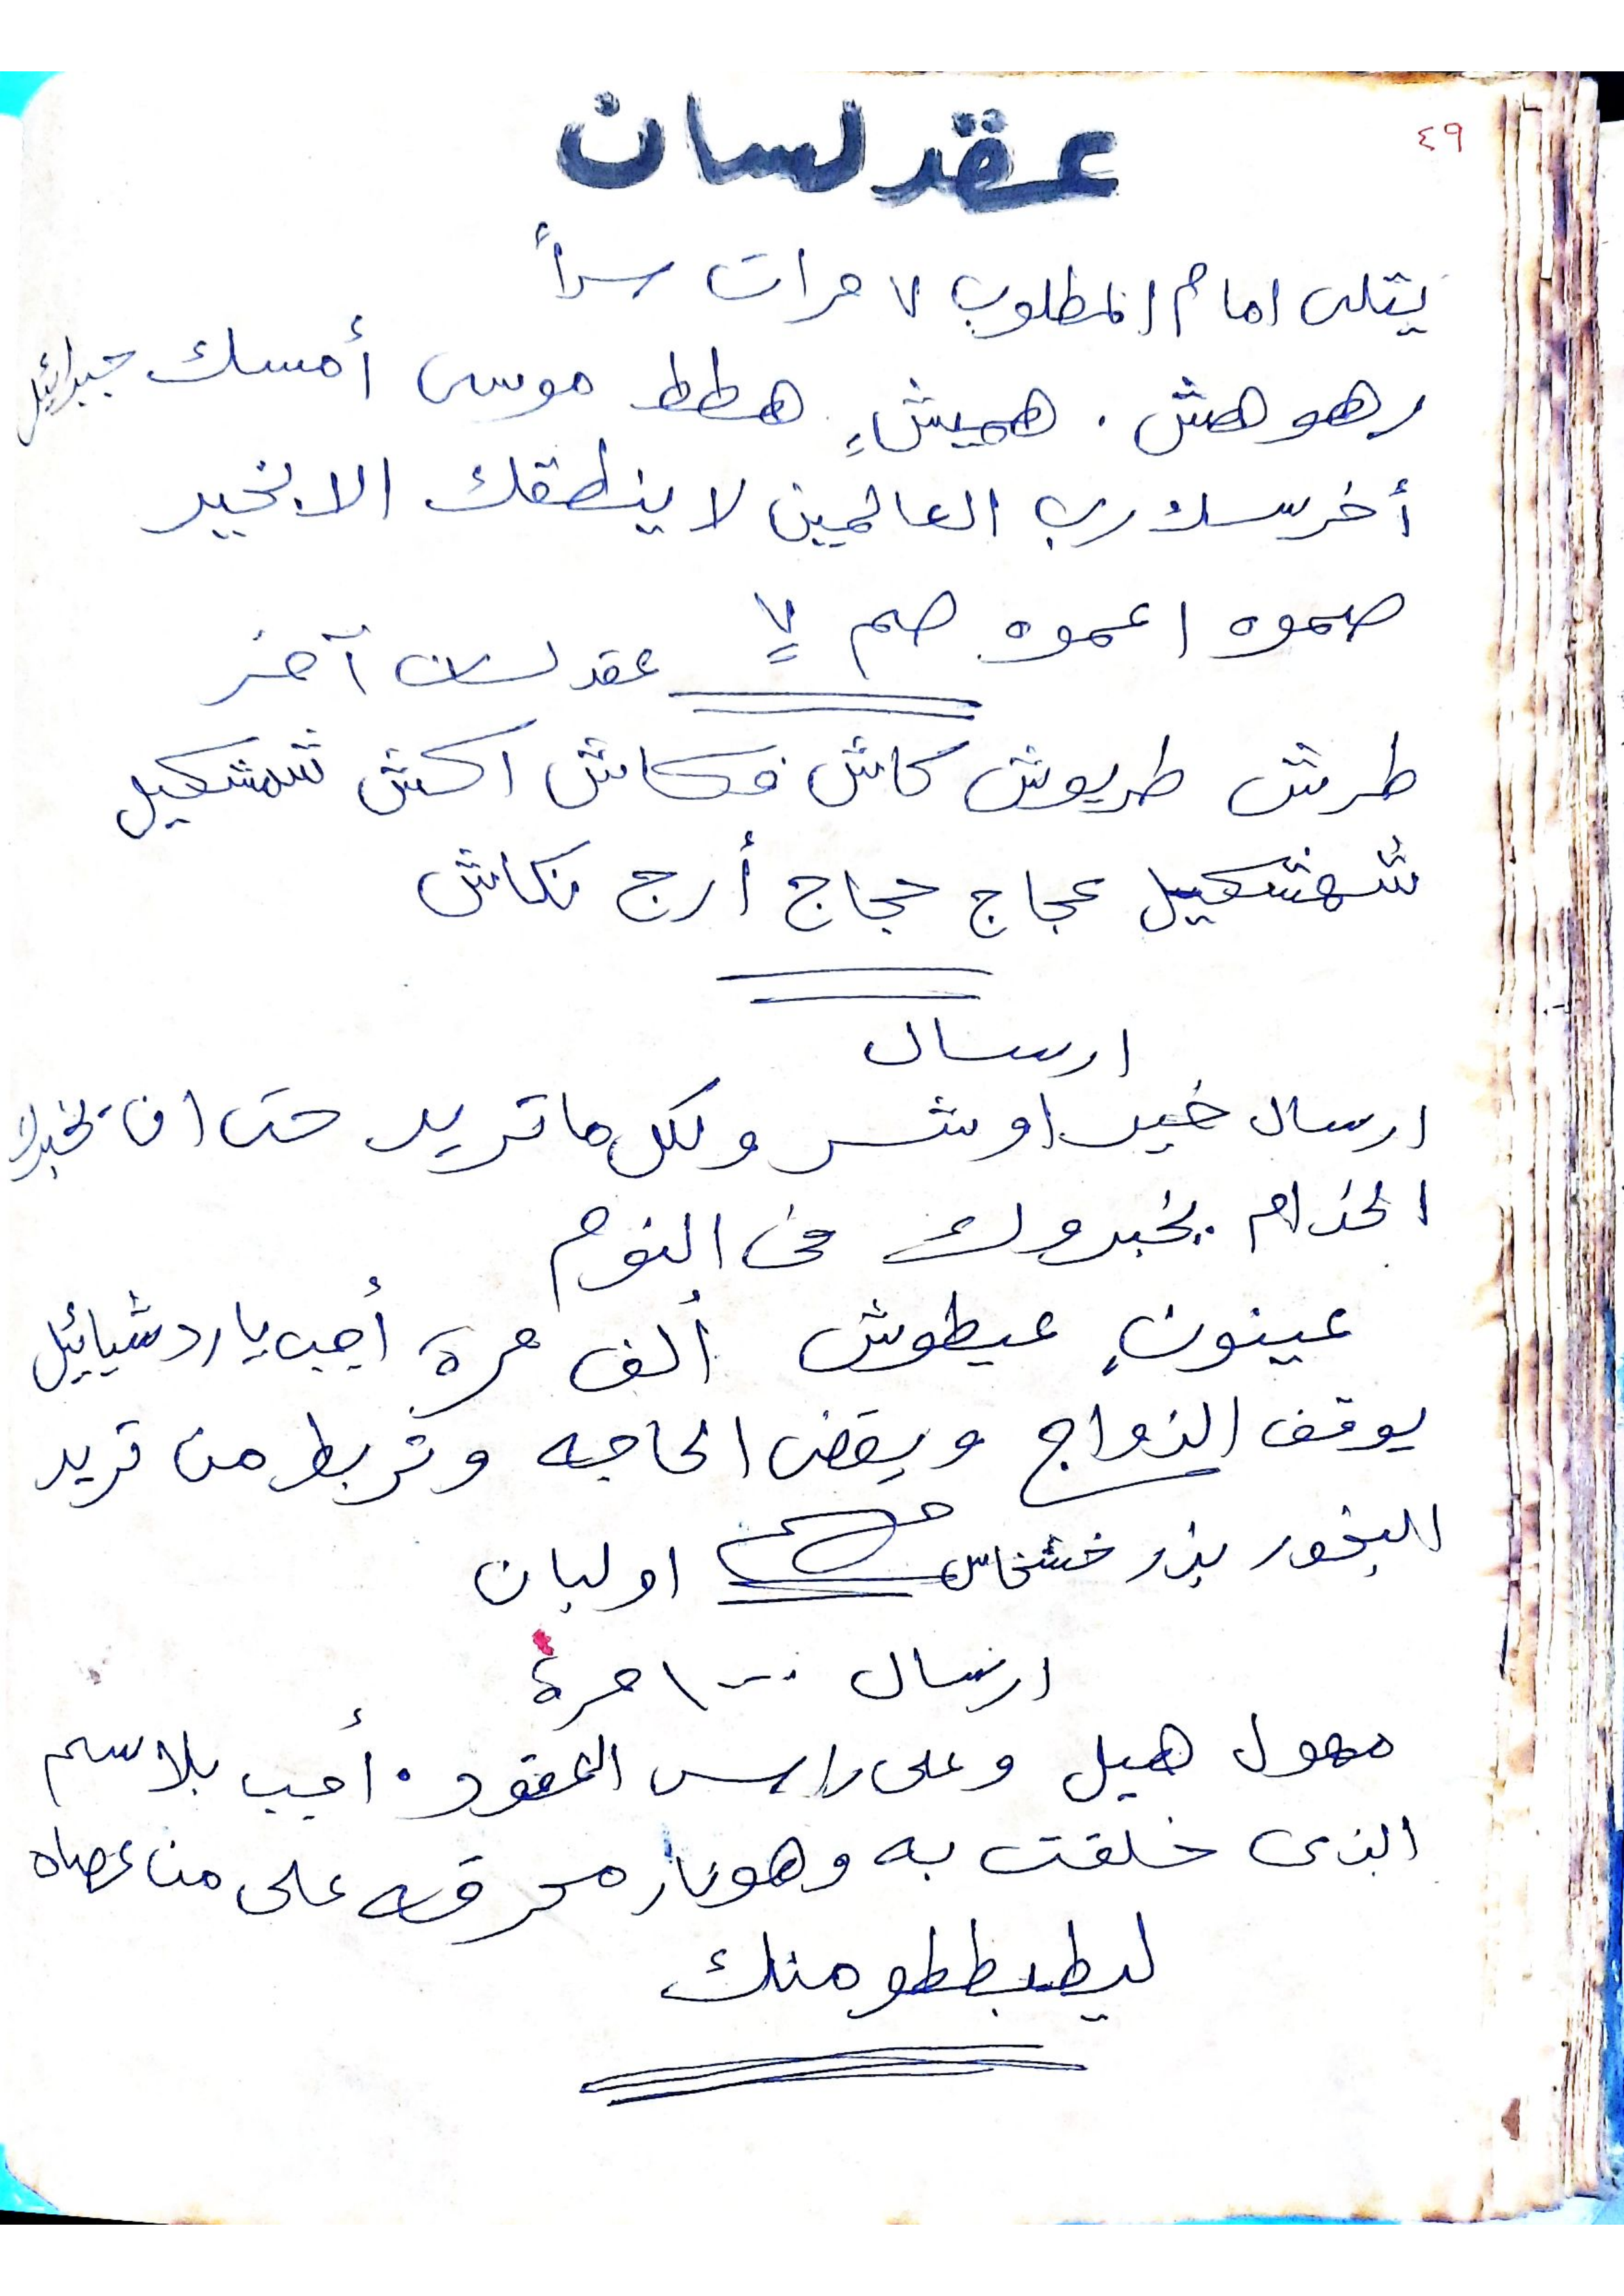 ٤٩
عقد لسان
يتلى امام المطلوب ٧ مرات سراً
رهوهش . هميش هطط موسى أمسك جبرائيل
أخرسك رب العالمين لا ينطقك الا بخير
صموه اعموه صم لا
عقد لسان آخر
طرش طريوش كاش فكاش اكش شمشكيل
شهشكيل عجاج حجاج أرج نكاش
ارسال
ارسال خير او شر ولكل ما تريد حتى ان يخبرك
الخدام يخبروك فى النوم
عينون عيطوش ألف مرة أجب يا ردشيائيل
يوقف الزواج ويقض الحاجه وتربط من تريد
البخور بذر خشخاش او لبان
ارسال ١٠٠٠ مرة
مهول هيل وعلى راس العقود . أجب بلاسم
الذى خلقت به وهو نار محرقه على من عصاه
منك